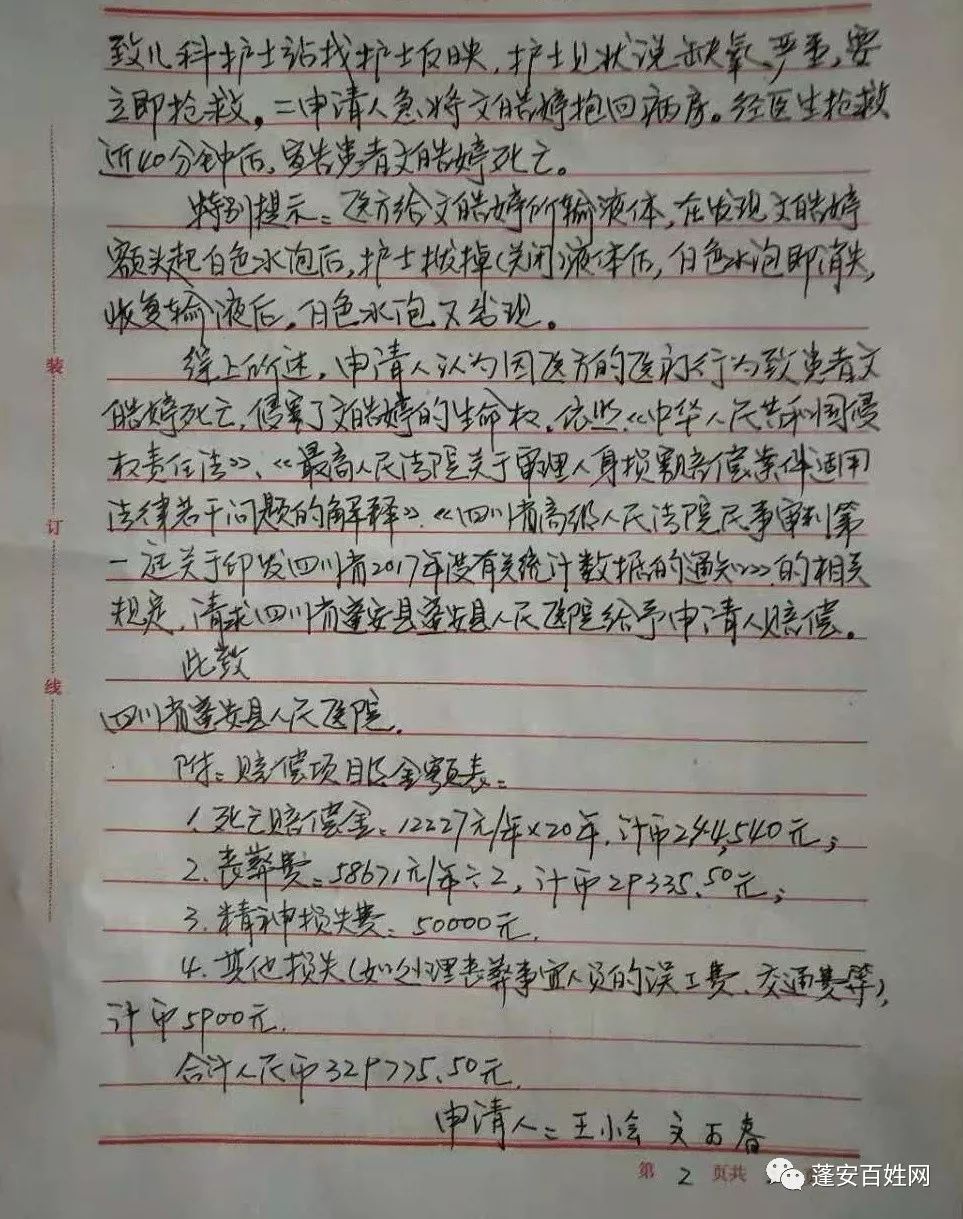 致儿科护士站找护士反映,护士见状说缺氧严重,要
立即抢救。二申请人急将文皓婷抱回病房。经医生抢救
近40分钟后,宣告患者文皓婷死亡。
特别提示:医方给文皓婷所输液体,在发现文皓婷
额头起白色水泡后,护士拔掉(关闭)液体后,白色水泡即消失,
恢复输液后,白色水泡又出现。
综上所述,申请人认为因医方的医疗行为致患者文
皓婷死亡,侵害了文皓婷的生命权。依照《中华人民共和国侵
权责任法》、《最高人民法院关于审理人身损害赔偿案件适用
法律若干问题的解释》、《四川省高级人民法院民事审判第
一庭关于印发四川省2017年度有关统计数据的通知》的相关
规定,请求四川省蓬安县蓬安县人民医院给予申请人赔偿。
此致
四川省蓬安县人民医院.
附:赔偿项目及金额表:
1.死亡赔偿金:12227元/年×20年,计币244,540元;
2.丧葬费:58671元/年÷2,计币29335.50元;
3.精神损失费:50000元.
4.其他损失(如处理丧葬事宜人员的误工费、交通费等),
计币5900元.
合计人民币329775.50元.
申请人:王小会 文万春
第 2 页共
装
订
线
蓬安百姓网